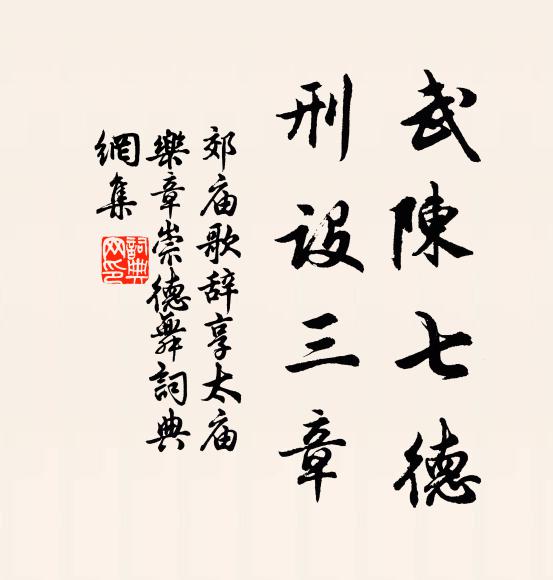 武陳七德
刑設三章
郊庙歌辞享太庙
樂章崇德舞詞典
網集
詞典
网印